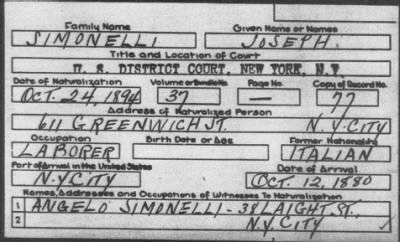 Family Name Given Name or Names
SIMONELLI JOSEPH.
Title and Location of Court
U. S. DISTRICT COURT, NEW YORK, N.Y.
Date of Naturalization Volume or Bundle No. Page No. Copy of Record No.
OCT. 24, 1894 37 — 77
Address of Naturalized Person
611 GREENWICH ST. N.Y. CITY
Occupation Birth Date or Age Former Nationality
LABORER ITALIAN
Port of Arrival in the United States Date of Arrival
N.Y CITY OCT. 12, 1880
Names, Addresses and Occupations of Witnesses To Naturalization
1 ANGELO SIMONELLI - 38 LAIGHT ST.,
2 N.Y. CITY